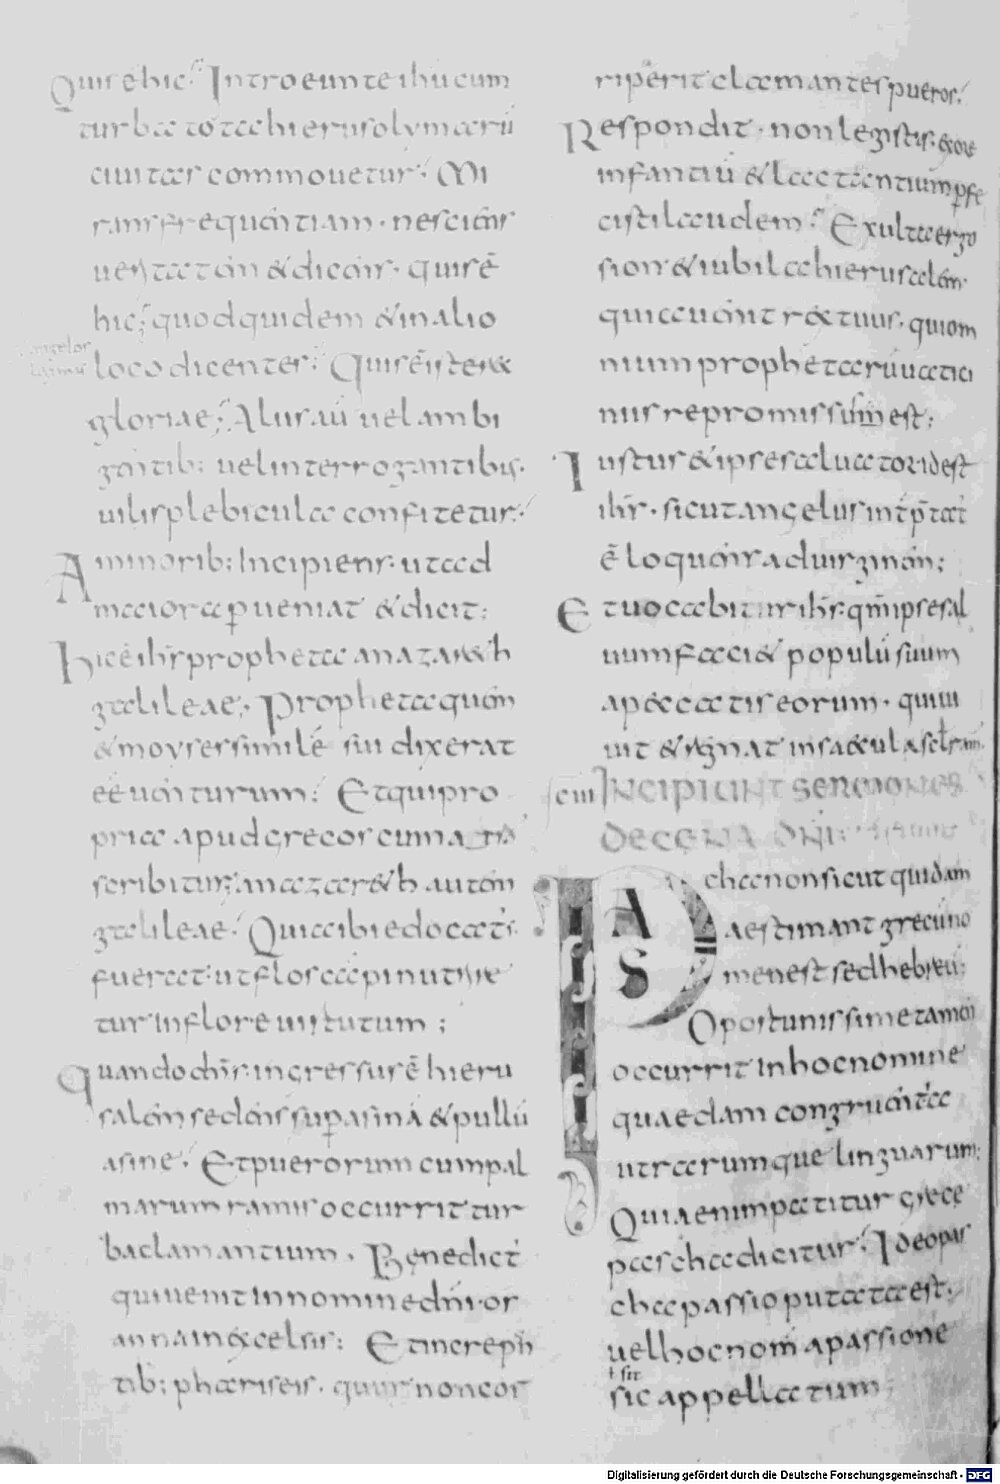 Quis ē hic; Introeunte ihu cum
turba tota hierusolymarū
ciuitas commouetur. Mi
rans frequentiam. nescians
ueritatem & dicens. quis ē
hic; quod quidem & in alio
loco dicentes; Quis ē iste rex
gloriae; Alus aū uel ambi
gentib; uel interrogantibus.
uilis plebicula confitetur;
A minorib; Incipiens. ut ad
maiora pueniat & dicit;
hic ē ihs propheta a nazareth
galileae; Propheta quem
& moyses similē sui dixerat
eē uenturum; Et qui pro
priae apud grecos cum
scribitur; a nazareth autem
galileae; Quia ibi edocat'
fuerat. ut flos a pinu
tur in flore uirtutum;
Quando dns. ingressus ē hieru
salem sedens sup asinā & pullū
asine. Et puerorum cum pal
marum ramis occurrit tur
ba clamantium. Benedict'
qui uenit in nomine dni. os
anna in excelsis; Et increpan
tib; phariseis. quur non cor
riperit clamantes pueros;
Respondit. non legistis. ex ore
infantiū & lactantium pfe
cisti laudem; Exulta ergo
sion & iubila hierusalem.
quia uenit rex tuus. quiom
nium prophetarū uatici
nus repromissum est;
Iustus & ipse saluator id est
ihs. sicut angelus intptat'
ē loquens ad uirginem;
Et uocabitur ihs. qm ipse sal
uum faciet populū suum
a peccatis eorum. qui ui
uit & regnat in saecula sclrm.
INCIPIUNT SERMONES
DE CENA DNI
PAScha non sicut quidam
aestimant grecū no
men est sed hebreū;
Oportunissime tamen
occurrit in hoc nomine
quaedam congruentia
utrarumque linguarum;
Quia enim patitur grece
pascha dicitur; Ideo pas
cha passio putata est.
uel hoc nom a passione
ł sit
sic appellatum